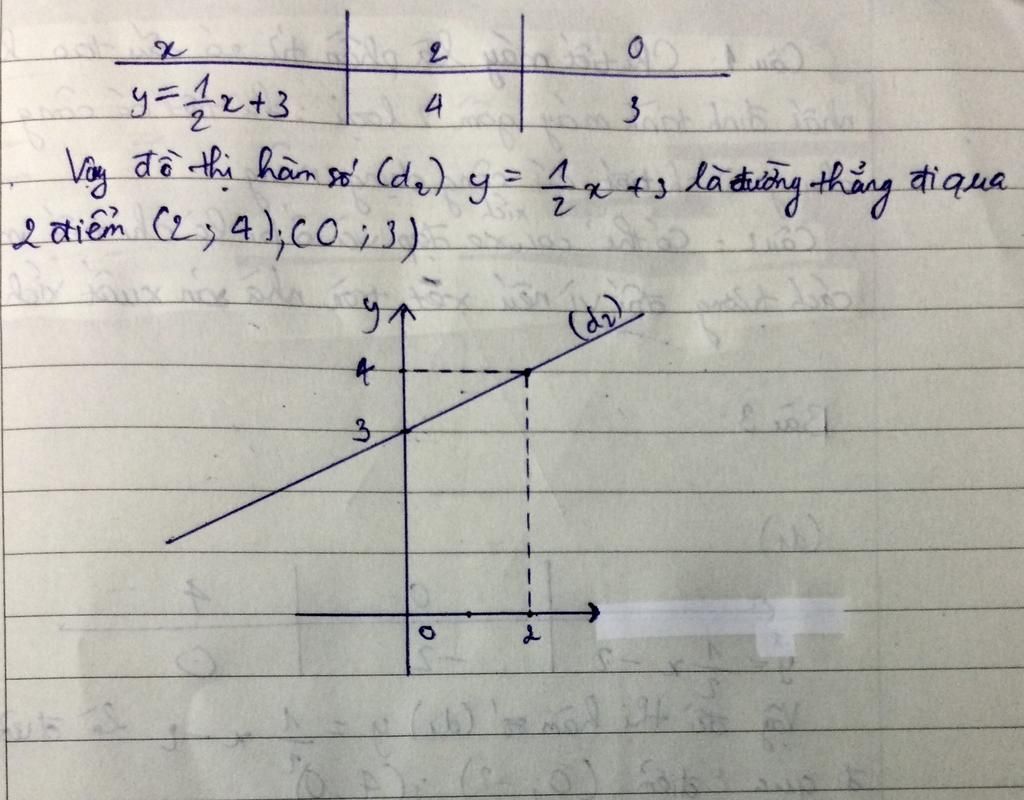 x 2 0
y = 1/2 x + 3 4 3
Vậy đồ thị hàm số (d₂) y = 1/2 x + 3 là đường thẳng đi qua
2 điểm (2 ; 4) ; (0 ; 3)
y
(d₂)
4
3
0 2